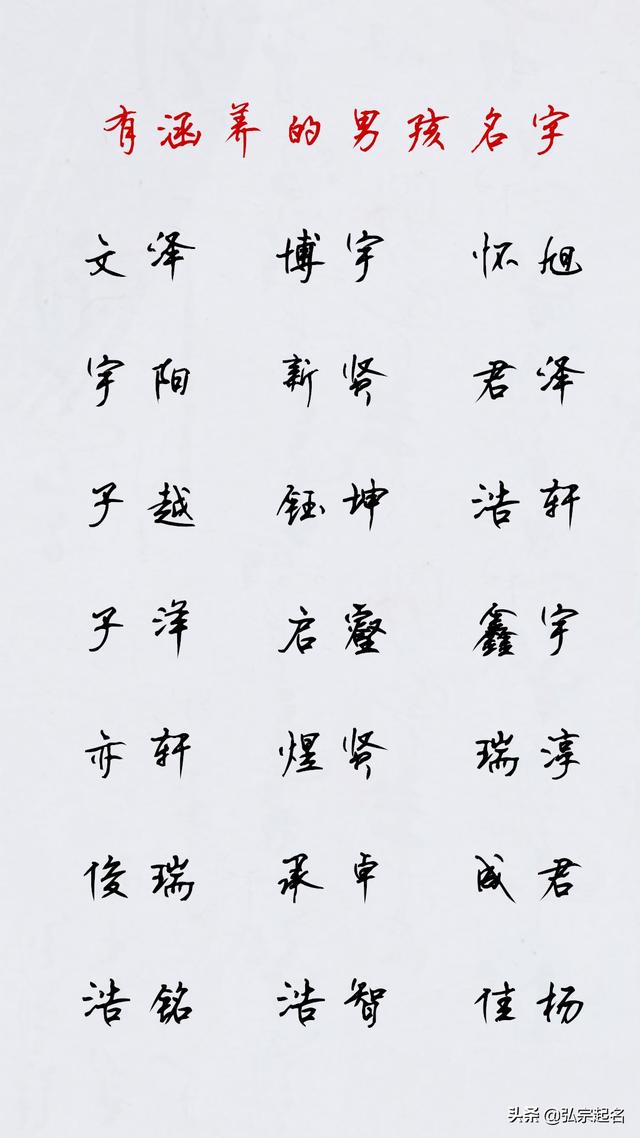 有涵养的男孩名字
文泽 博宇 怀旭
宇阳 新贤 君泽
子越 钰坤 浩轩
子洋 启壑 鑫宇
亦轩 煜贤 瑞淳
俊瑞 承卓 成君
浩铭 浩智 佳杨
头条 @弘宗起名